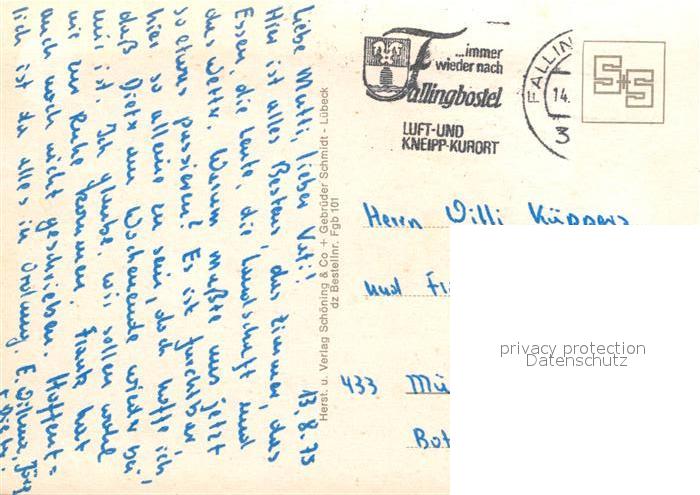 13.8.75
Liebe Mutti, lieber Vati!
Hier ist alles Bestens, das Zimmer, das
Essen, die Leute, die Landschaft und
das Wetter. Warum mußte uns jetzt
so etwas passieren? Es ist furchtbar
hier so alleine zu sein, doch hoffe ich,
daß Dieter am Wochenende wieder bei
mir ist. Ich glaube, wir sollen wohl
nie zur Ruhe kommen. Frank hat
auch noch nicht geschrieben. Hoffent=
lich ist da alles in Ordnung. E. Jörg
...immer
wieder nach
Fallingbostel
LUFT-UND
KNEIPP-KURORT
FALLIN
14.
3
S+S
Herst. u. Verlag Schöning & Co + Gebrüder Schmidt - Lübeck
dz Bestellnr. Fgb 101
Herrn Willi Küppers
und F
433 Mü
Bot
privacy protection
Datenschutz